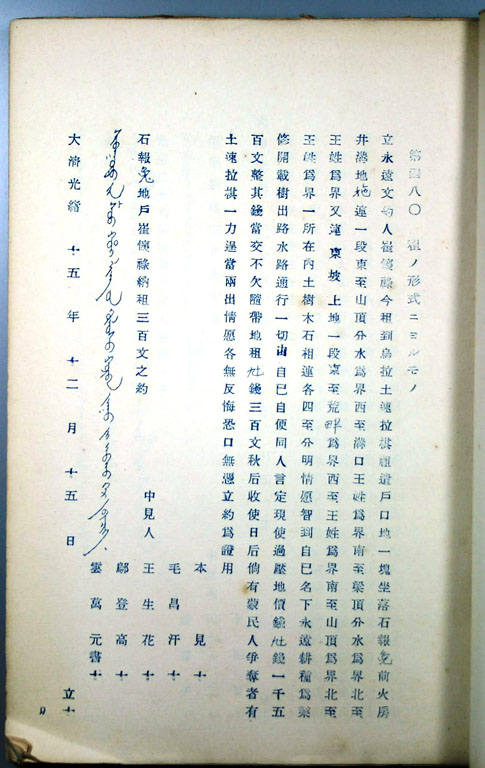 第四八〇　租ノ形式ニヨルモノ
立永遠文約人崔儍祿今租到烏拉土速拉棋祖遺戶口地一塊坐落石報兔前火房
井溝地炧連一段東至山頂分水爲界西至溝口王姓爲界南至梁頂分水爲界北至
王姓爲界又連東坡上地一段東至荒畔爲界西至王姓爲界南至山頂爲界北至
王姓爲界一所在內土樹木石相連各四至分明情愿智到自己名下永遠耕種爲業
修開栽樹出路水路通行一切由自己自便同人言定現使過壓地價錢灺錢一千五
百文整其錢當交不欠隨帶地租灺錢三百文秋后收使日后倘有蒙民人爭奪者有
土速拉棋一力遑當兩出情愿各無反悔恐口無憑立約爲證用
石報兔地戶崔儍祿納租三百文之約
中見人
本見十
毛昌汗十
王生花十
鄔登高十
雲萬元書十
大淸光緖十五年十二月十五日　立十